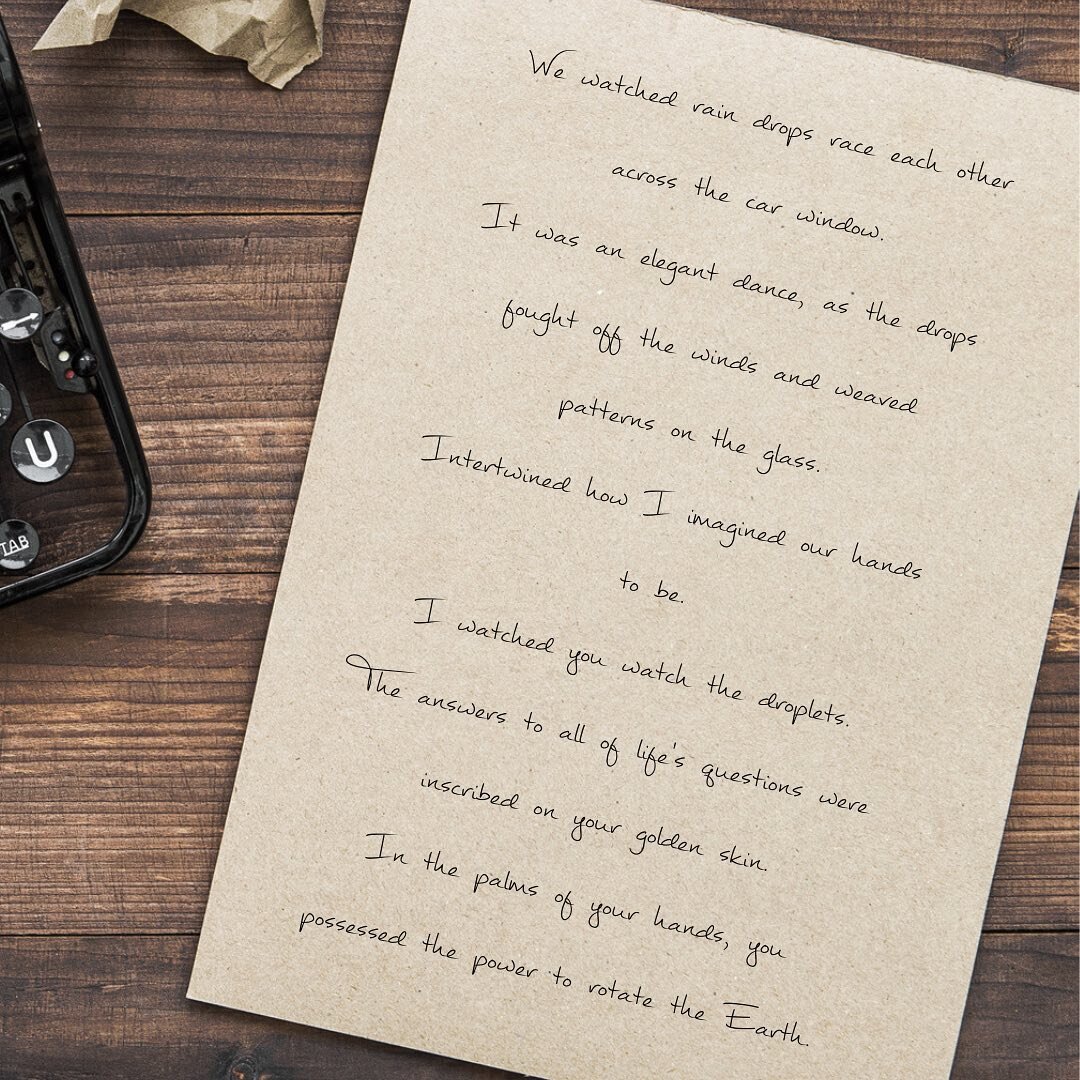 We watched rain drops race each other
across the car window.
It was an elegant dance, as the drops
fought off the winds and weaved
patterns on the glass.
Intertwined how I imagined our hands
to be.
I watched you watch the droplets.
The answers to all of life's questions were
inscribed on your golden skin.
In the palms of your hands, you
possessed the power to rotate the Earth.
U
TAB